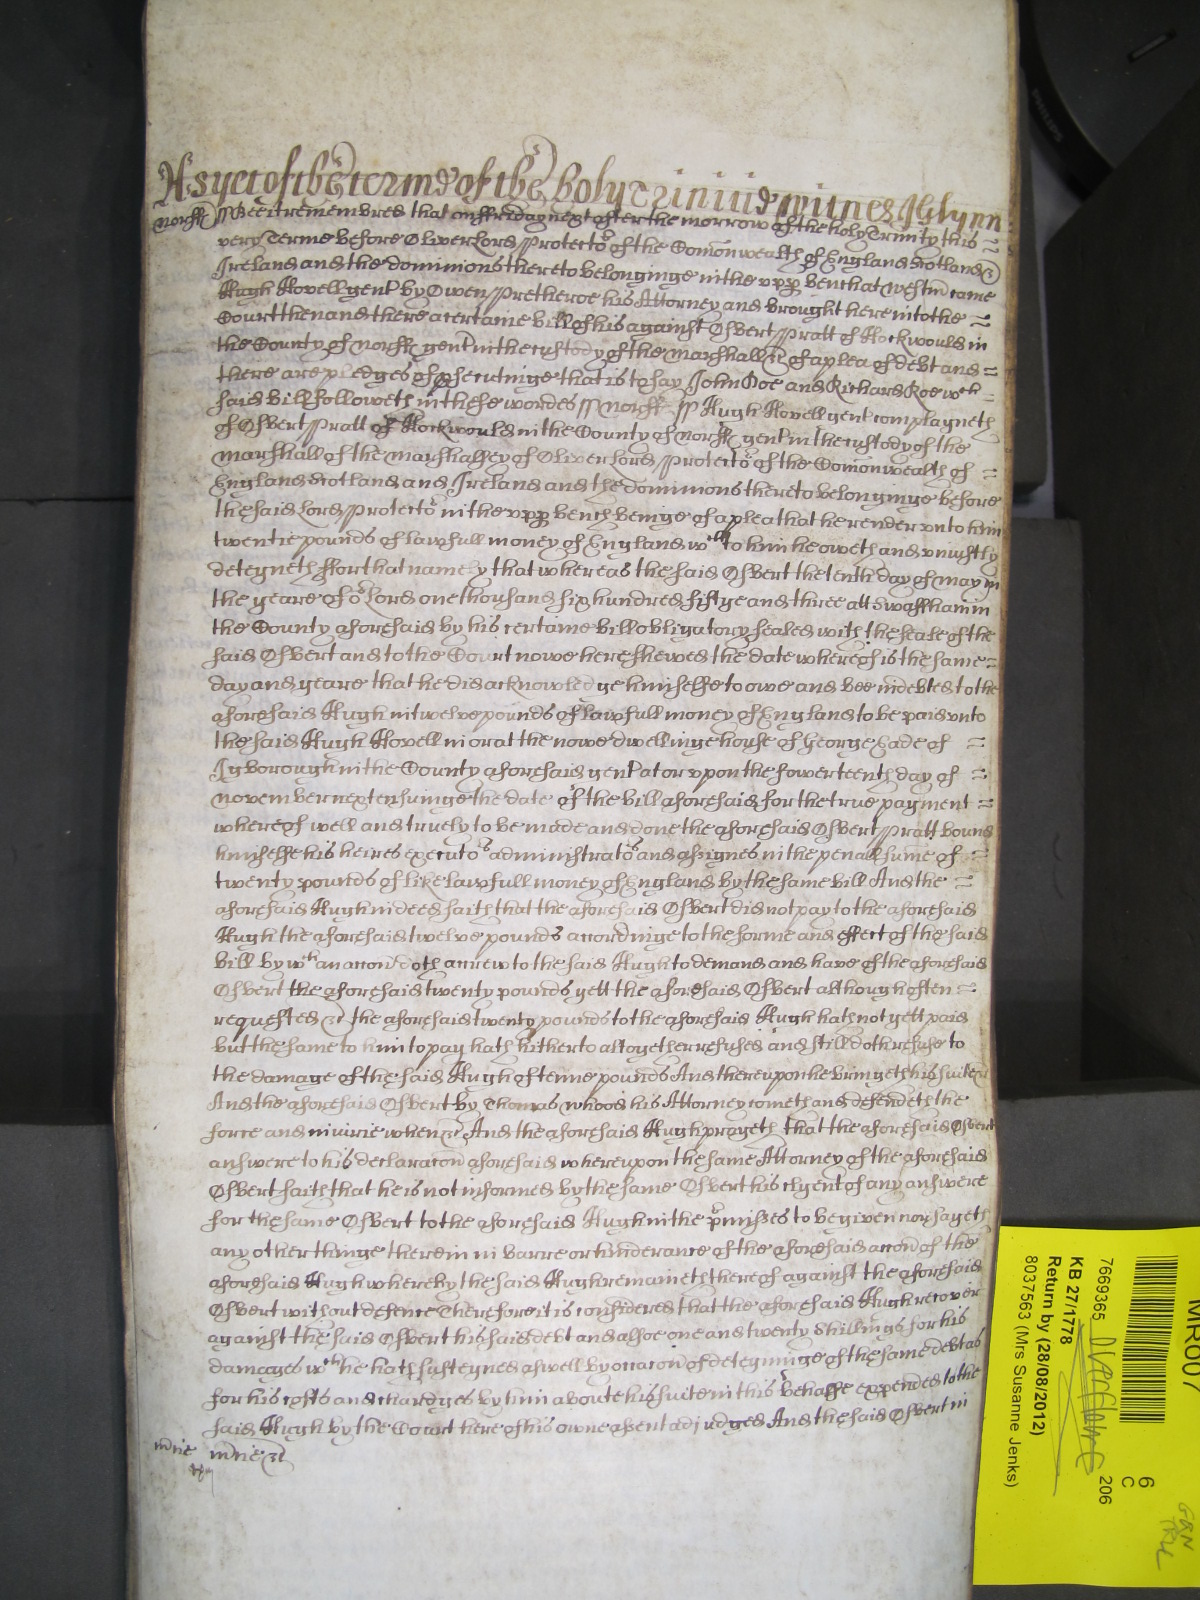 As yet of the terme of the holy Trinitie witnes J Glynn
Norff ss Bee it remembred that on ffriday next after the morrow of the holy Trinity this =
very Terme before Oliver Lord Protector of the Comonwealth of England Scotland &
Ireland and the dominions thereto belonginge in the upp bench at Westm came
Hugh Rovell gent by Owen Pretheroe his Attorney and brought here into the =
Court then and there a certaine bill of his against Osbert Pratt of Hockwould in
the County of Norff gent in the custody of the Marshall &c of a plea of debt and =
there are pledges of psecutinge that is to say John Doe and Richard Roe wch
said bill followeth in these wordes ss Norff ss Hugh Rovell gent complayneth
of Osbert Pratt of Hockwould in the County of Norff gent in the custody of the
Marshall of the Marshalsey of Oliver Lord Protector of the Comonwealth of =
England Scotland and Ireland and the dominions thereto belonginge before
the said Lord Protector in the upp bench beinge of a plea that he render unto him
twentie pounds of lawfull money of England wch to him he oweth and uniustly
deteyneth ffor that namely that whereas the said Osbert the tenth day of May in
the yeare of or Lord one thousand six hundred fiftye and three att Swaffham in
the County aforesaid by his certaine bill obligatory sealed with the seale of the
said Osbert and to the Court nowe here shewed the date whereof is the same =
day and yeare that he did acknowledge himselfe to owe and bee indebted to the
aforesaid Hugh in twelve pounds of lawfull money of England to be paid unto
the said Hugh Rovell in or at the nowe dwellinge house of George Eade of =
Igborough in the County aforesaid gent at or upon the fowerteenth day of =
November next ensuinge the date of the bill aforesaid for the true payment =
whereof well and truely to be made and done the aforesaid Osbert Pratt bound
himselfe his heires executors administrators and assignes in the penall sume of =
twenty pounds of like lawfull money of England by the same bill And the =
aforesaid Hugh in deed saith that the aforesaid Osbert did not pay to the aforesaid
Hugh the aforesaid twelve pounds accordinge to the forme and effect of the said
bill by wch an accon doth accrew to the said Hugh to demand and have of the aforesaid
Osbert the aforesaid twenty pounds yett the aforesaid Osbert although often =
requested &c the aforesaid twenty pounds to the aforesaid Hugh hath not yett paid
but the same to him to pay hath hitherto altogether refused and still doth refuse to
the damage of the said Hugh of tenne pounds And thereupon he bringeth his suite &c
And the aforesaid Osbert by Thomas Whood his Attorney cometh and defendeth the
force and iniurie when &c And the aforesaid Hugh prayeth that the aforesaid Osbert
answere to his declaracon aforesaid whereupon the same Attorney of the aforesaid
Osbert saith that he is not informed by the same Osbert his clyent of any answere
for the same Osbert to the aforesaid Hugh in the pmisses to be given nor sayeth
any other thinge therein in barre or hinderance of the aforesaid accon of the
aforesaid Hugh whereby the said Hugh remaineth thereof against the aforesaid
Osbert without defence Therefore it is considered that the aforesaid Hugh recover
against the said Osbert his said debt and alsoe one and twenty shillings for his
damages wch he hath susteyned aswell by occacon of deteyninge of the same debt as
for his costs and chardges by him aboute his suite in this behalfe expended to the
said Hugh by the Court here of his owne assent adjudged And the said Osbert in
mcie mcie &c
MR007
7669365
6
C
206
KB 27/1778
Return by (28/08/2012)
8037563 (Mrs Susanne Jenks)